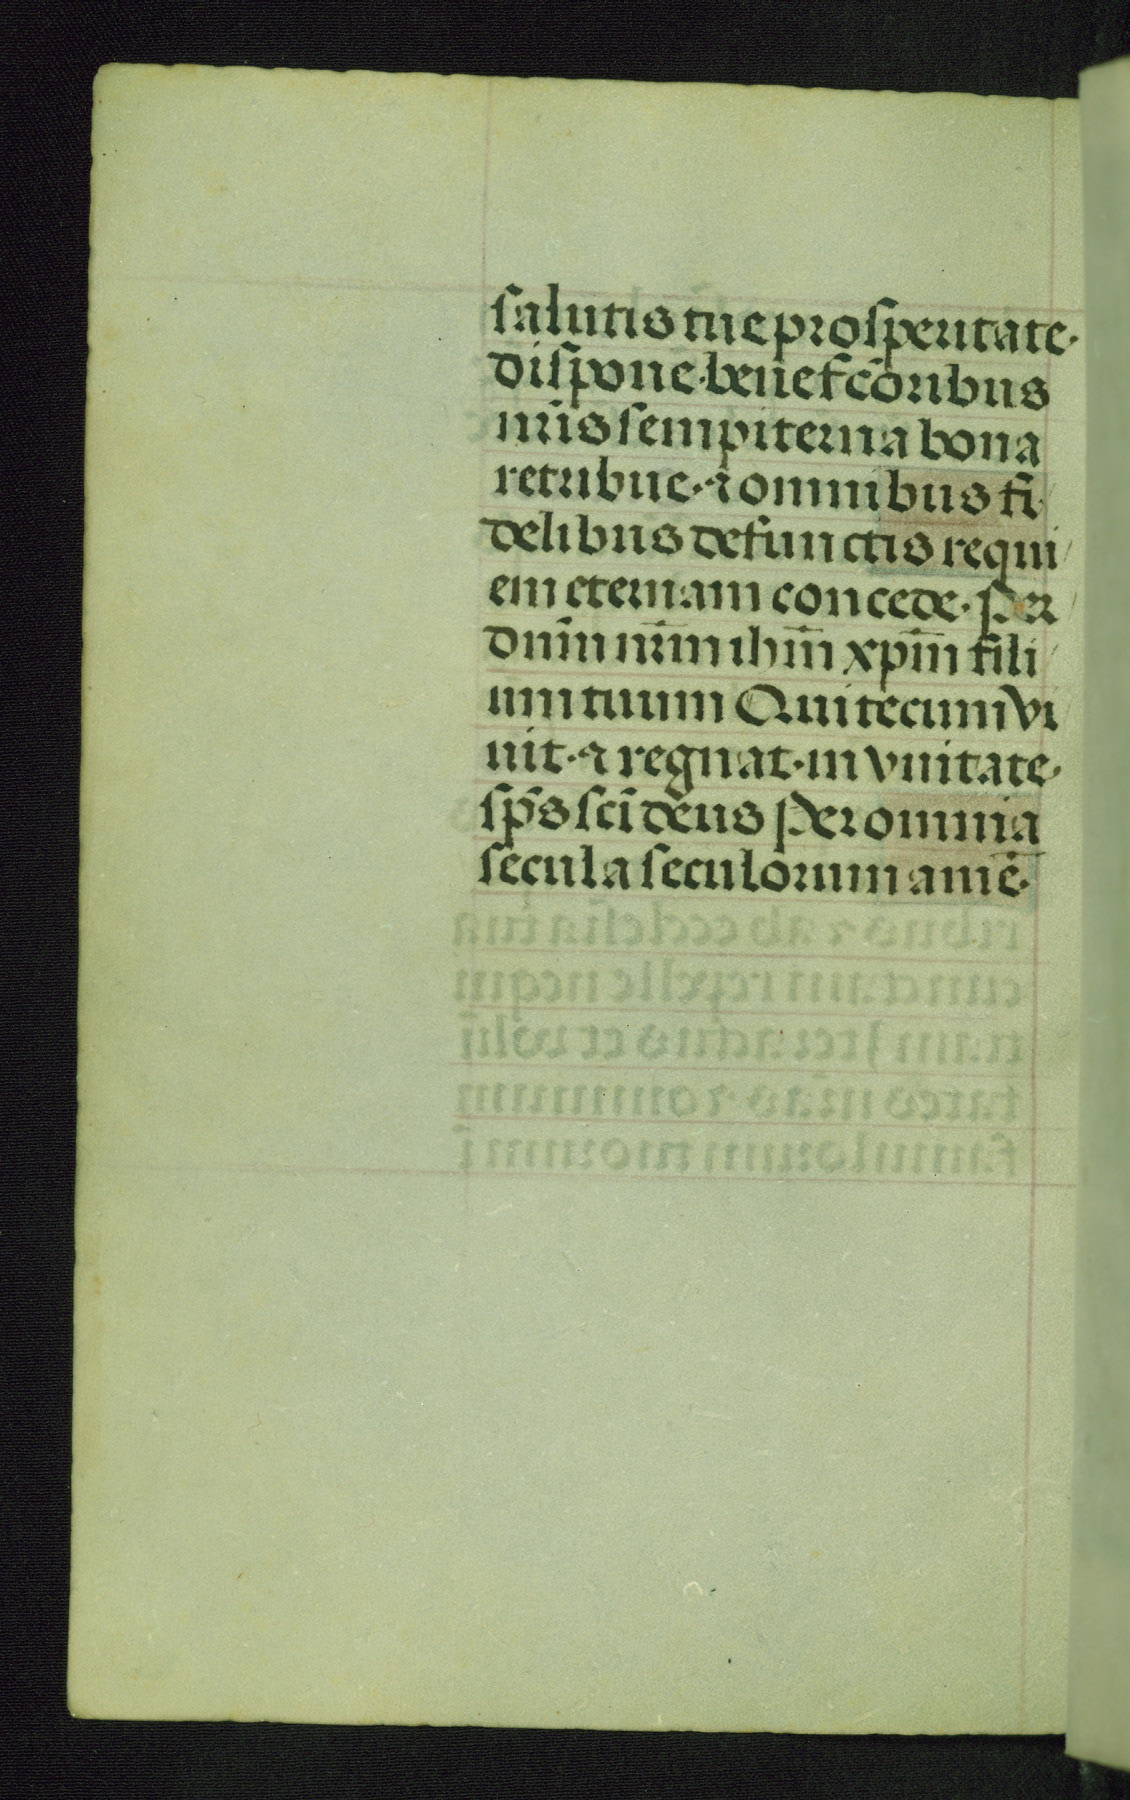 salutis tue prosperitate·
dispone·benefc̄oribus
nr̄is sempiterna bona
retribue·⁊ omnibus fi
delibus defunctis requi
em eternam concede· Per
dn̄m nr̄m ihm̄ xpm̄ fili
um tuum Qui tecum vi
uit·⁊ regnat·in vnitate·
sp̄s sc̄i deus Per omnia
secula seculorum amē·